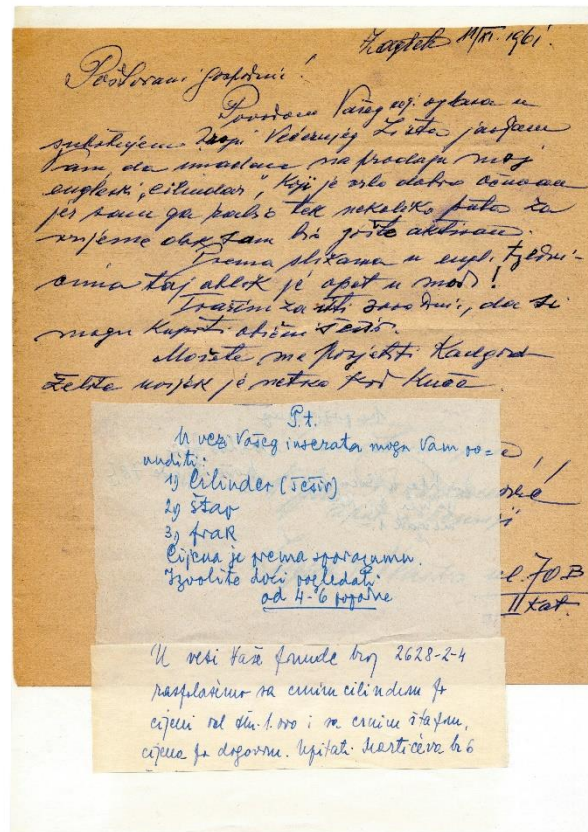 Zagreb 11/XI. 1961.
Poštovani gospodine!
Povodom Vašeg oglasa u
Večernjeg Lista javljam
Vam, da imadem na prodaju moj
engleski "cilindar", koji je vrlo dobro očuvan
jer sam ga rabio tek nekoliko puta za
vrijeme dok sam bio još aktivan.
Prema slikama u engl.
taj oblik je opet u modi!
Tražim za isti 3000 din, da si
mogu kupiti obični šešir.
Možete me posjetiti kadgod
želite uvijek je netko kod kuće.
70.B
II kat.
P.t.
U vezi Vašeg inserata mogu Vam po=
nuditi:
1) Cilinder (šešir)
2) Štap
3) frak
Cijena je prema sporazumu.
Izvolite doći pogledati.
od 4-6 popodne
U vezi Vaše ponude broj 2628-2-4
raspolažemo sa crnim cilindrom po
cijeni od din. 1.000 i sa crnim štapom,
cijena po dogovoru. Upitati Martićeva br 6